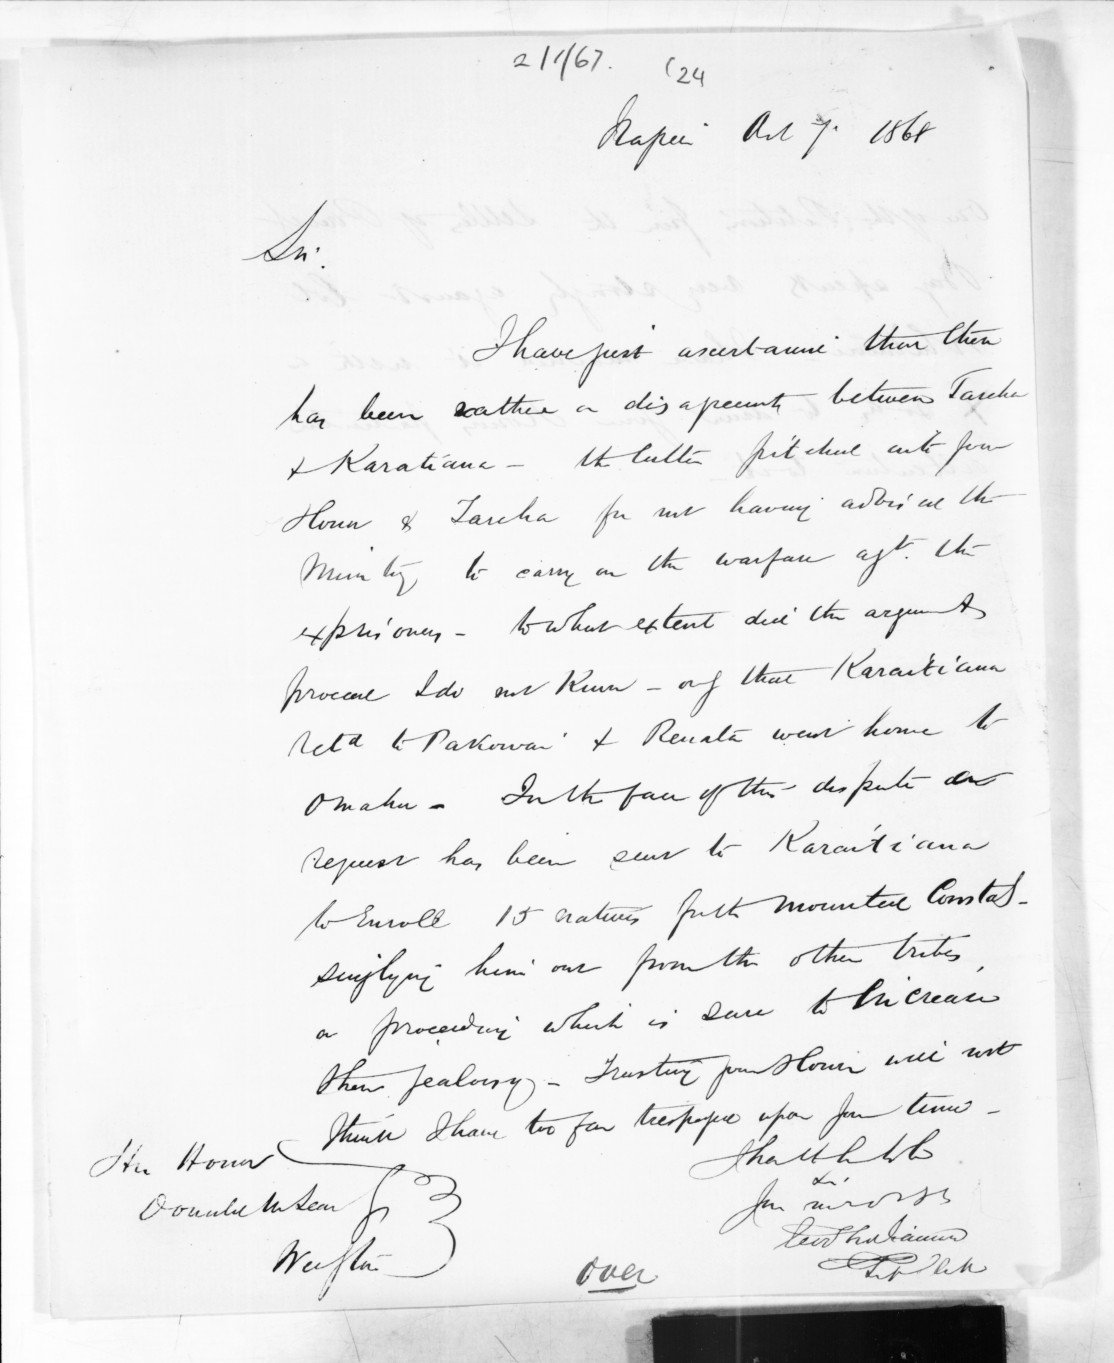 2/1/67. (24
Napier Oct 7. 1868
Sir.
I have just ascertained that there
has been rather a disagreement between Tareha
& Karaitiana - the latter pitched into your
Honor & Tareha for not having advised the
Ministry to carry on the warfare agt. the
exprisoners - to what extent did the arguments
proceed I do not know - only that Karaitiana
retd to Pakowai & Renata went home to
Omahu - In the face of this dispute a
request has been sent to Karaitiana
to Enroll 15 natives for the Mounted Constab-
singling him out from the other tribes,
a proceeding which is sure to increase
their jealousy - Trusting your Honor will not
think I have too far trespassed upon your time -
I have the honor to be
Sir
Your
His Honor
Donald McLean
Wellgton
Over